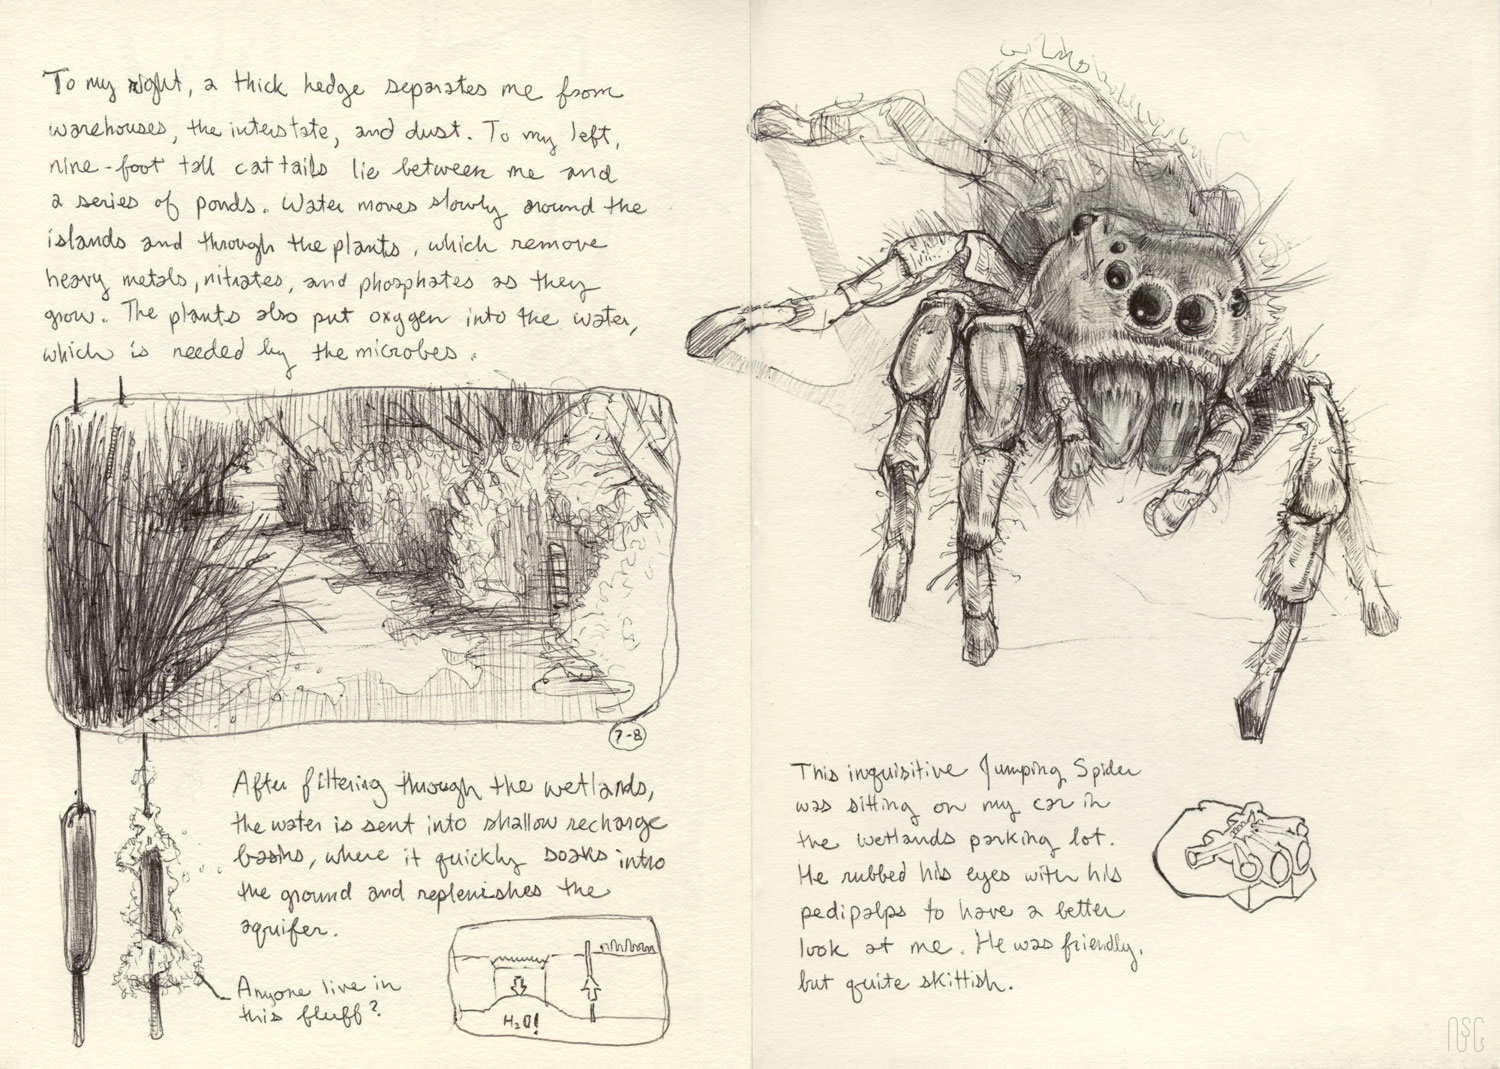 To my right, a thick hedge separates me from
warehouses, the interstate, and dust. To my left,
nine-foot tall cattails lie between me and
a series of ponds. Water moves slowly around the
islands and through the plants, which remove
heavy metals, nitrates, and phosphates as they
grow. The plants also put oxygen into the water,
which is needed by the microbes.
7-8
After filtering through the wetlands,
the water is sent into shallow recharge
basins, where it quickly soaks into
the ground and replenishes the
aquifer.
Anyone live in
this fluff?
H2O!
This inquisitive Jumping Spider
was sitting on my car in
the wetlands parking lot.
He rubbed his eyes with his
pedipalps to have a better
look at me. He was friendly,
but quite skittish.